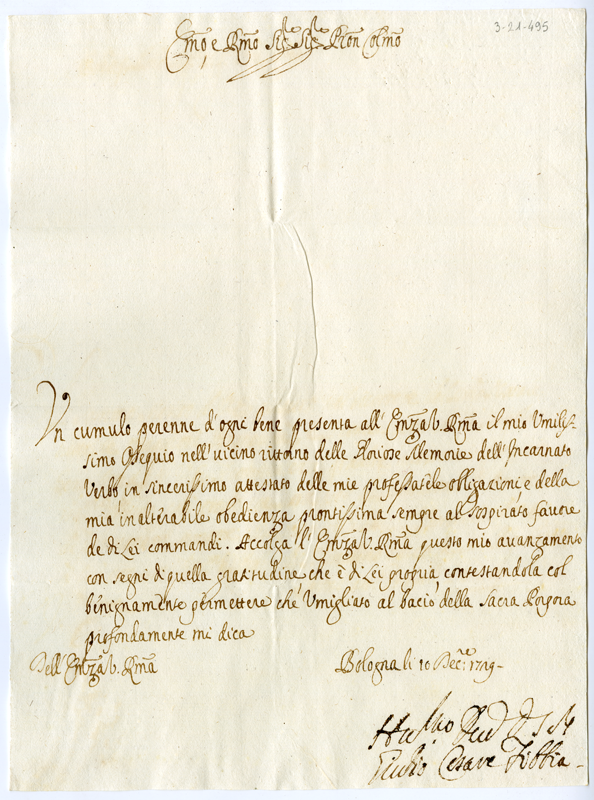 3-21-495
Emo, e Rmo Sig.re Sig.re Pron Colmo
Un cumulo perenne d'ogni bene presenta all' Emza V. Rma il mio Umilis-
simo Osequio nell'vicino rittorno delle Gloriose Memorie dell'Incarnato
Verbo in sincerissimo attestato delle mie professatele obligazioni, e della
mia inalterabile obedienza prontissima sempre al sospirato favore
de di Lei commandi. Accolga l'Emza V. Rma questo mio avanzamento
con segni di quella gratitudine, che è di Lei propria contestandola col
benignamente permettere che Umigliato al bacio della Sacra Porpora
profondamente mi dica
Dell' Emza V. Rma
Bologna li 10 Dec.re 1719-
Hu.mo
Giulio Cesare Fibbia-